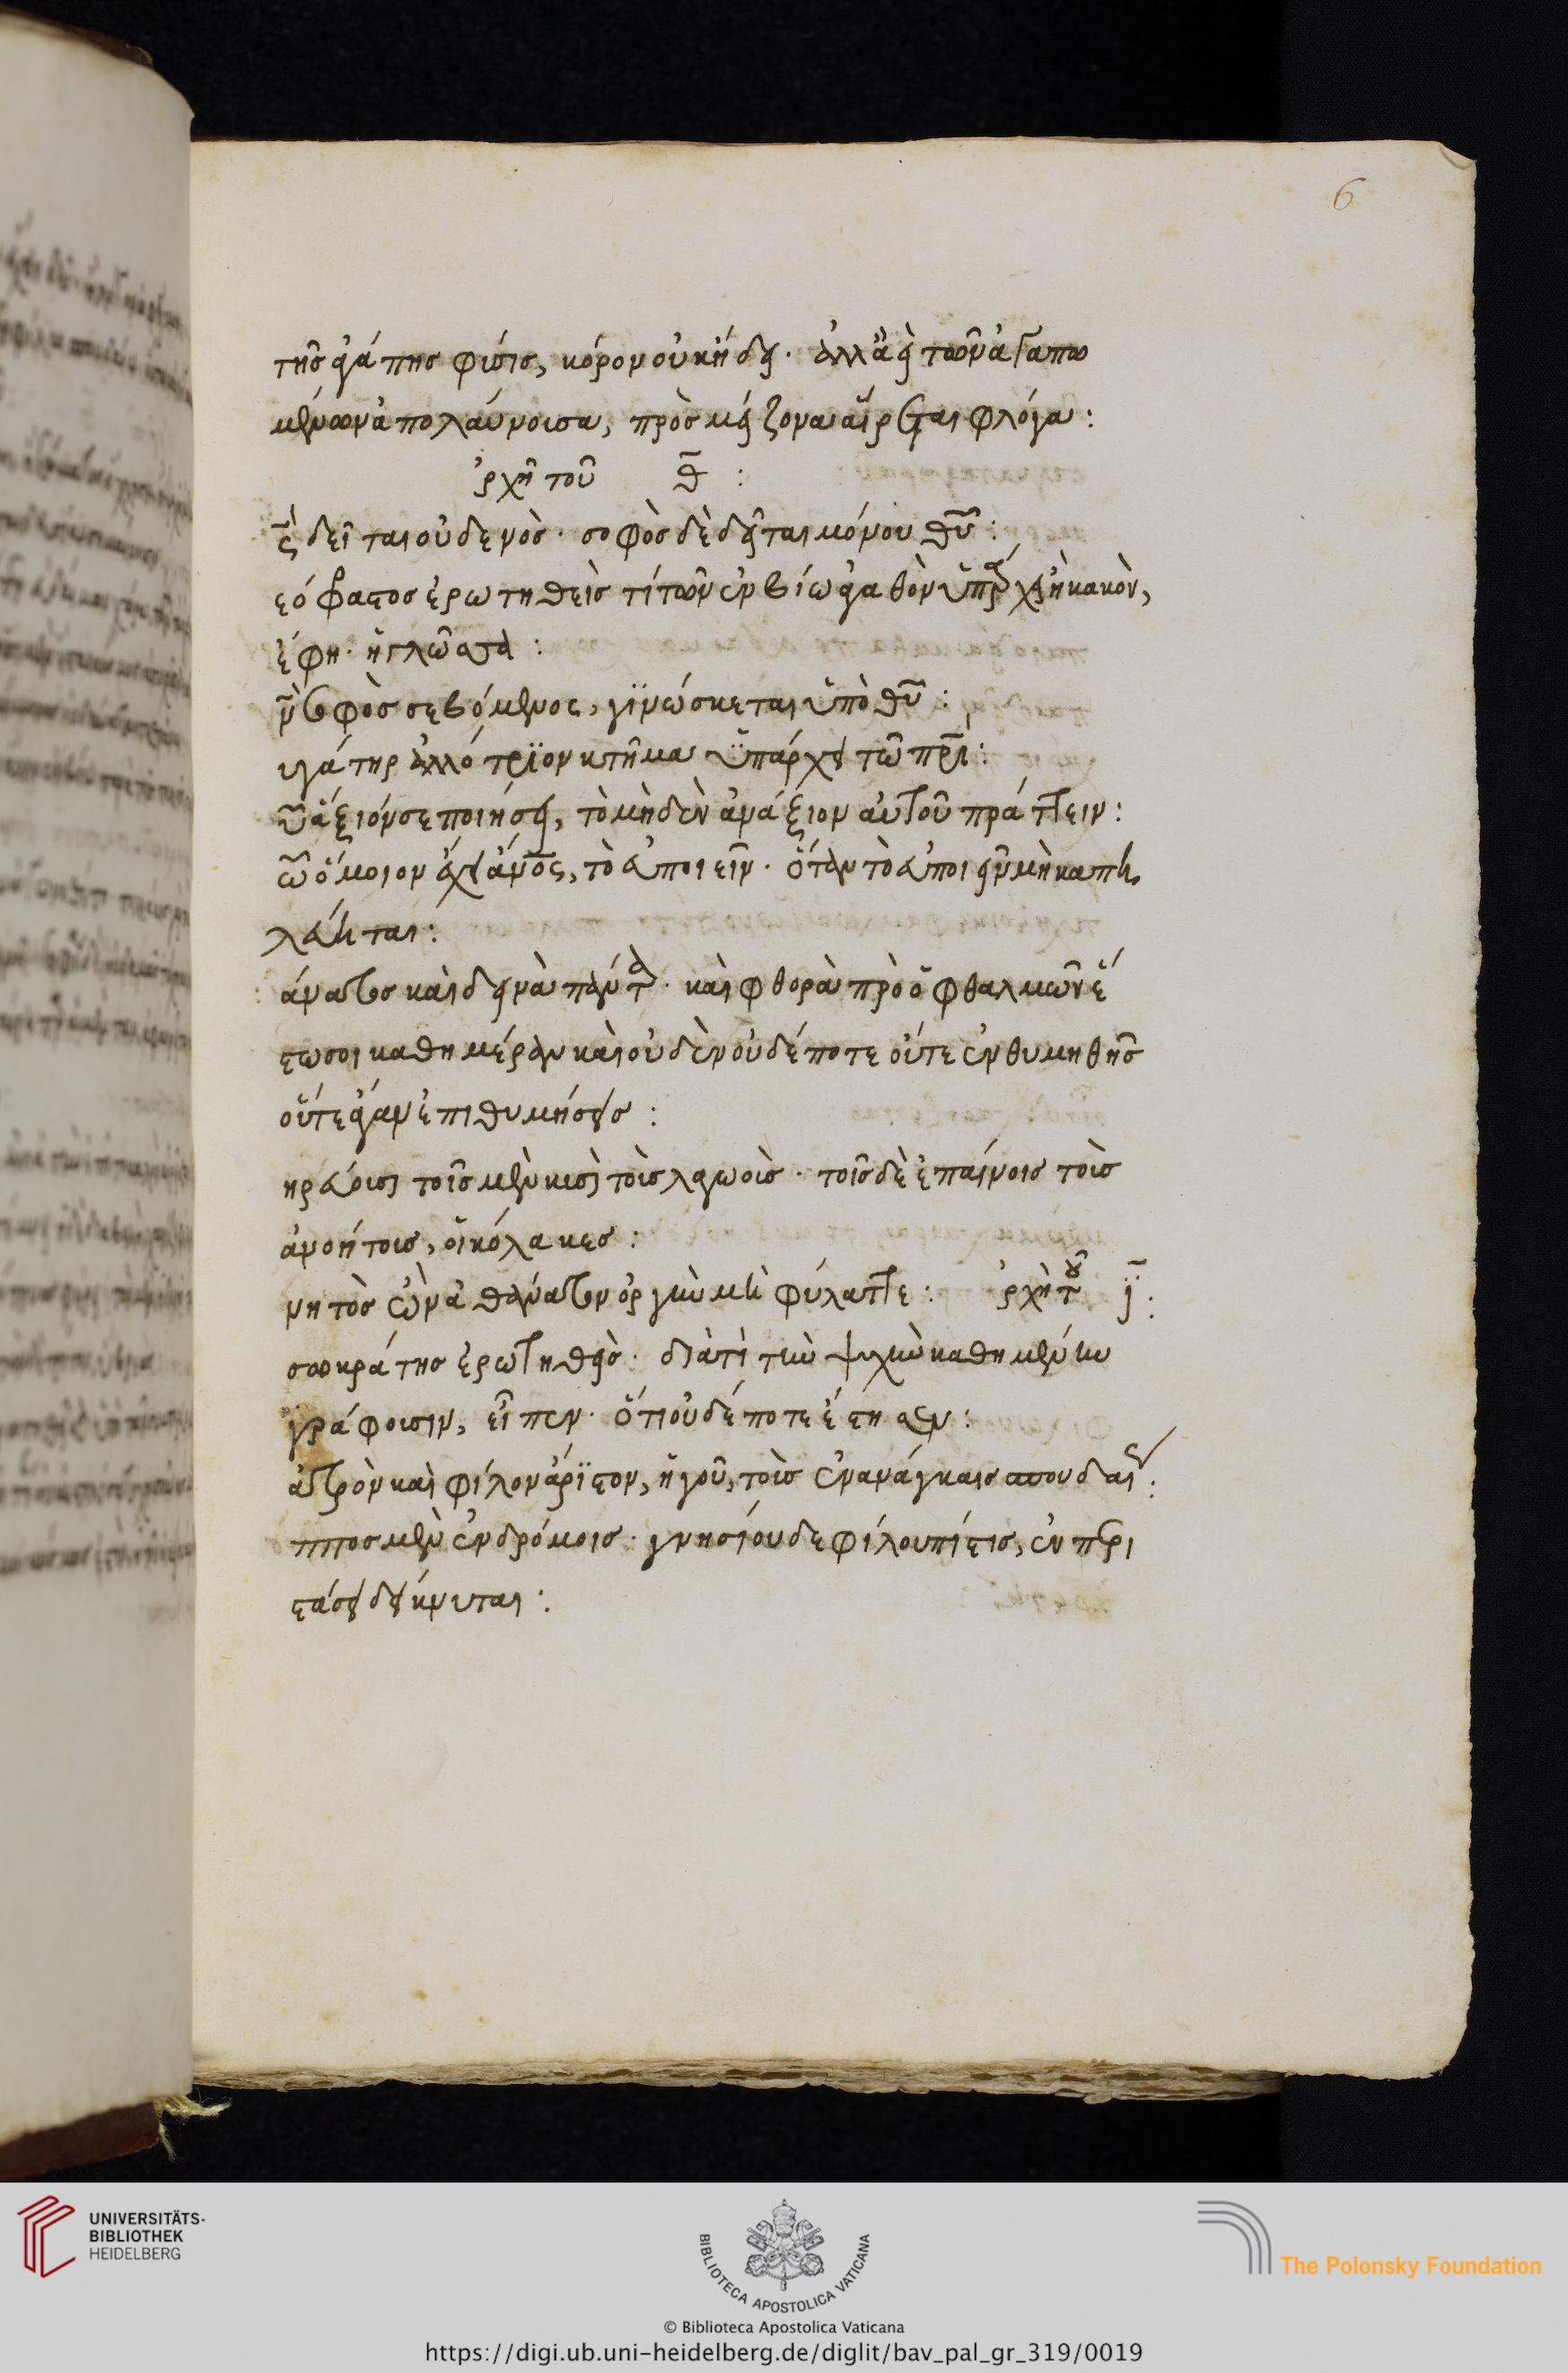 6
τῆς ἀγάπης φύσις, κόρον οὐκ ἤδει. ἀλλ' ἀεὶ τῶν ἀγαπω
μένων ἀπολαύουσα, πρὸς μείζονα αἴρεται φλόγα:
ρχὴ τοῦ θ̄:
ς̄ δεῖται οὐδενὸς. σοφὸς δὲ δεῖται μόνου θῦ:
εόφραστος ἐρωτηθεὶς τί τῶν ἐν βίω ἀγαθὸν ὑπάρχει ἢ κακὸν,
ἔφη. ἡ γλῶσσα:
ν̄ σοφὸς σεβόμενος, γϊνώσκεται ὑπὸ θῦ:
υγάτηρ ἀλλότρϊον κτῆμα ὑπάρχει τῶ πρι:
ῦ ἄξιόν σε ποιήσει, τὸ μηδὲν ἀνάξιον αὐτοῦ πράττειν:
ῶ ὅμοιον ἔχει ἄνος, τὸ εὖ ποιεῖν. ὅταν τὸ εὖ ποιεῖν μὴ καπη
λεύηται:
άνατος καὶ δεινὰ πάντα. καὶ φθορὰ πρὸ ὀφθαλμῶν ἔ
στω σοι καθημέραν καὶ οὐδὲν οὐδέποτε οὔτε ἐνθυμηθῆς
οὔτε ἄγαν ἐπιθυμήσεις:
ηρεύουσι τοῖς μὲν κυσὶ τοὺς λαγωοὺς. τοῖς δὲ ἐπαίνοις τοὺς
ἀνοήτους, οἱ κόλακες:
νητὸς ὢν ἀθάνατον ὀργὴν μὴ φύλαττε: ρχὴ τοῦ ϊ̄:
σωκράτης ἐρωτηθεὶς. διὰ τί τὴν ψυχὴν καθημένην
γράφουσιν, εἶπεν. ὅτι οὐδέποτε ἔστησεν:
ἰατρὸν καὶ φίλον ἄρϊστον, ἡγοῦ, τοὺς ἐν ἀνάγκαις σπουδαί:
ππος μὲν ἐν δρόμοις. γνησίου δε φίλου πίστις, ἐν περι
στάσει δείκνυται:
UNIVERSITÄTS-
BIBLIOTHEK
HEIDELBERG
BIBLIOTECA APOSTOLICA VATICANA
The Polonsky Foundation
© Biblioteca Apostolica Vaticana
https://digi.ub.uni-heidelberg.de/diglit/bav_pal_gr_319/0019